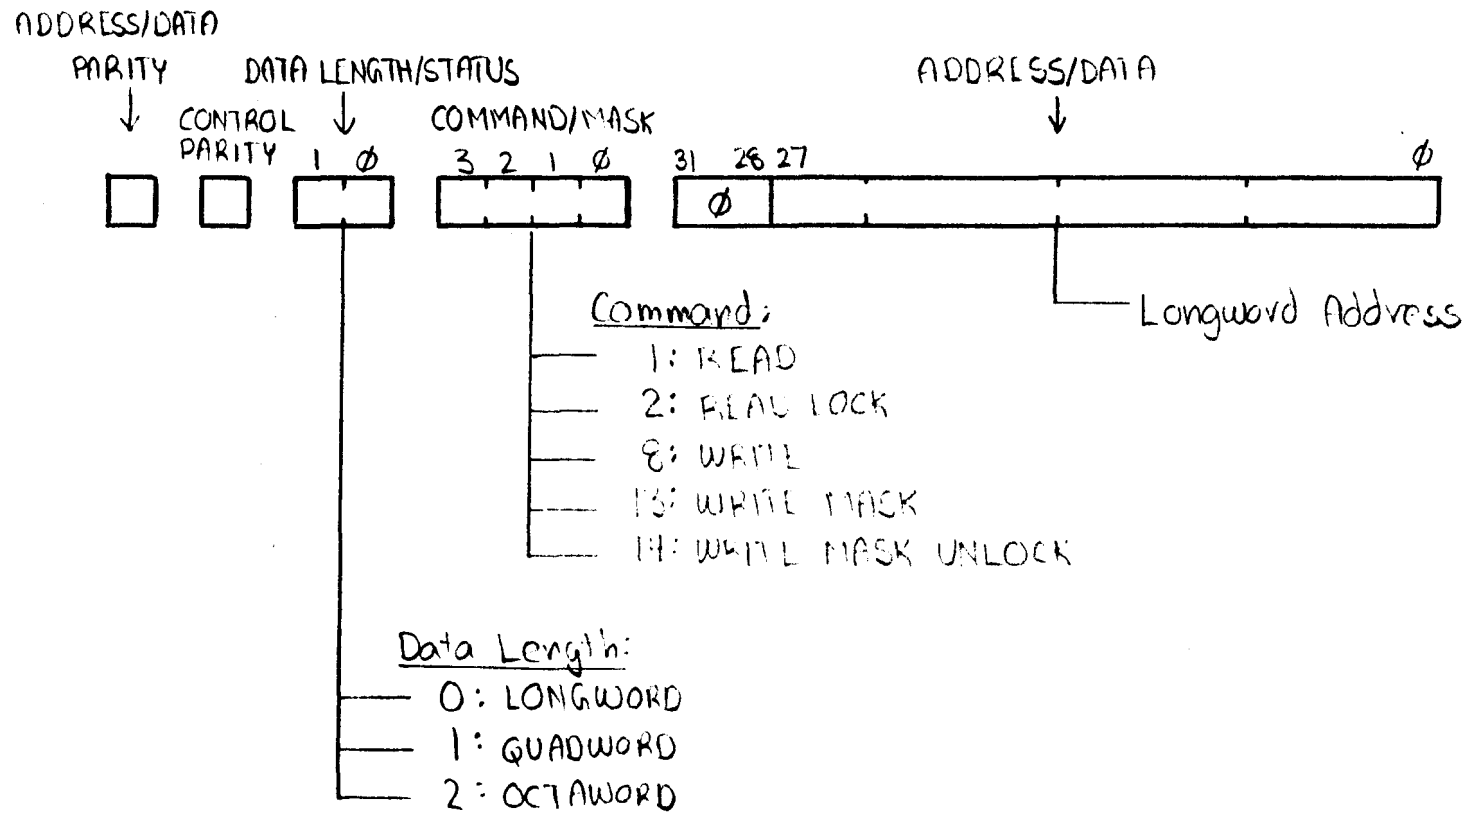 ADDRESS/DATA
PARITY
DATA LENGTH/STATUS
ADDRESS/DATA
CONTROL
PARITY
COMMAND/MASK
1 Ø
3 2 1 Ø
31 28 27 Ø
Ø
Longword Address
Command:
1: READ
2: READ LOCK
8: WRITE
13: WRITE MASK
14: WRITE MASK UNLOCK
Data Length:
0: LONGWORD
1: QUADWORD
2: OCTAWORD